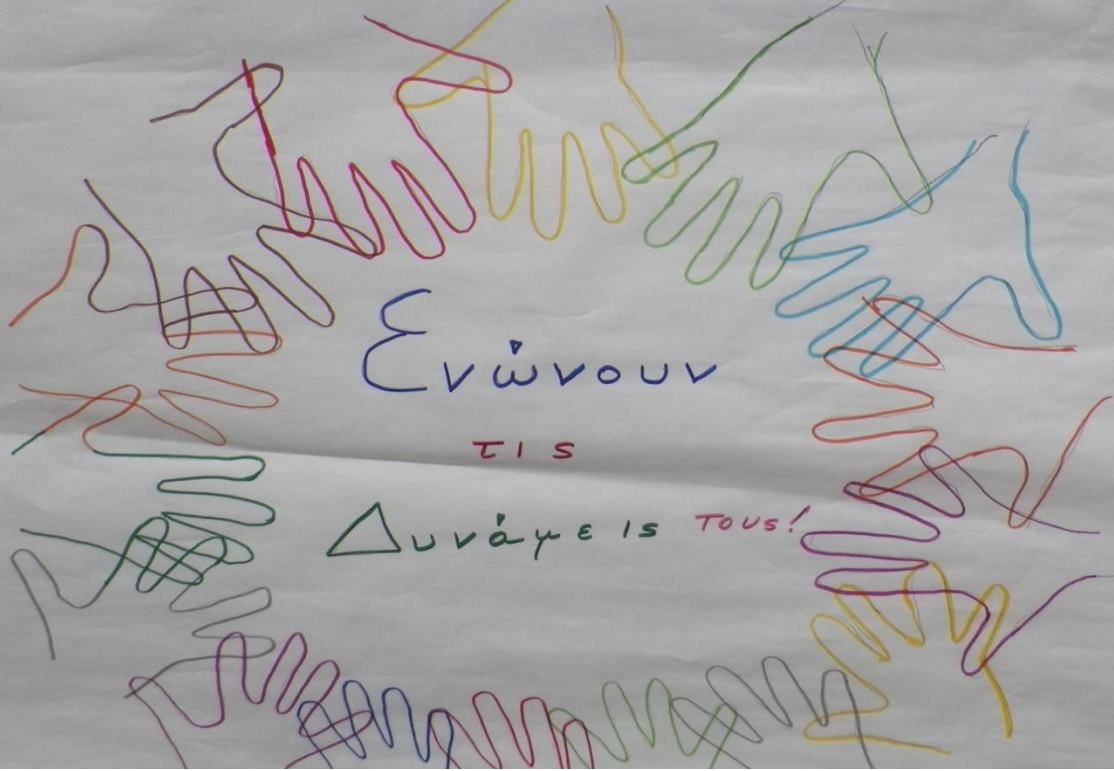 Ενώνουν
τις
Δυνάμεις τους!